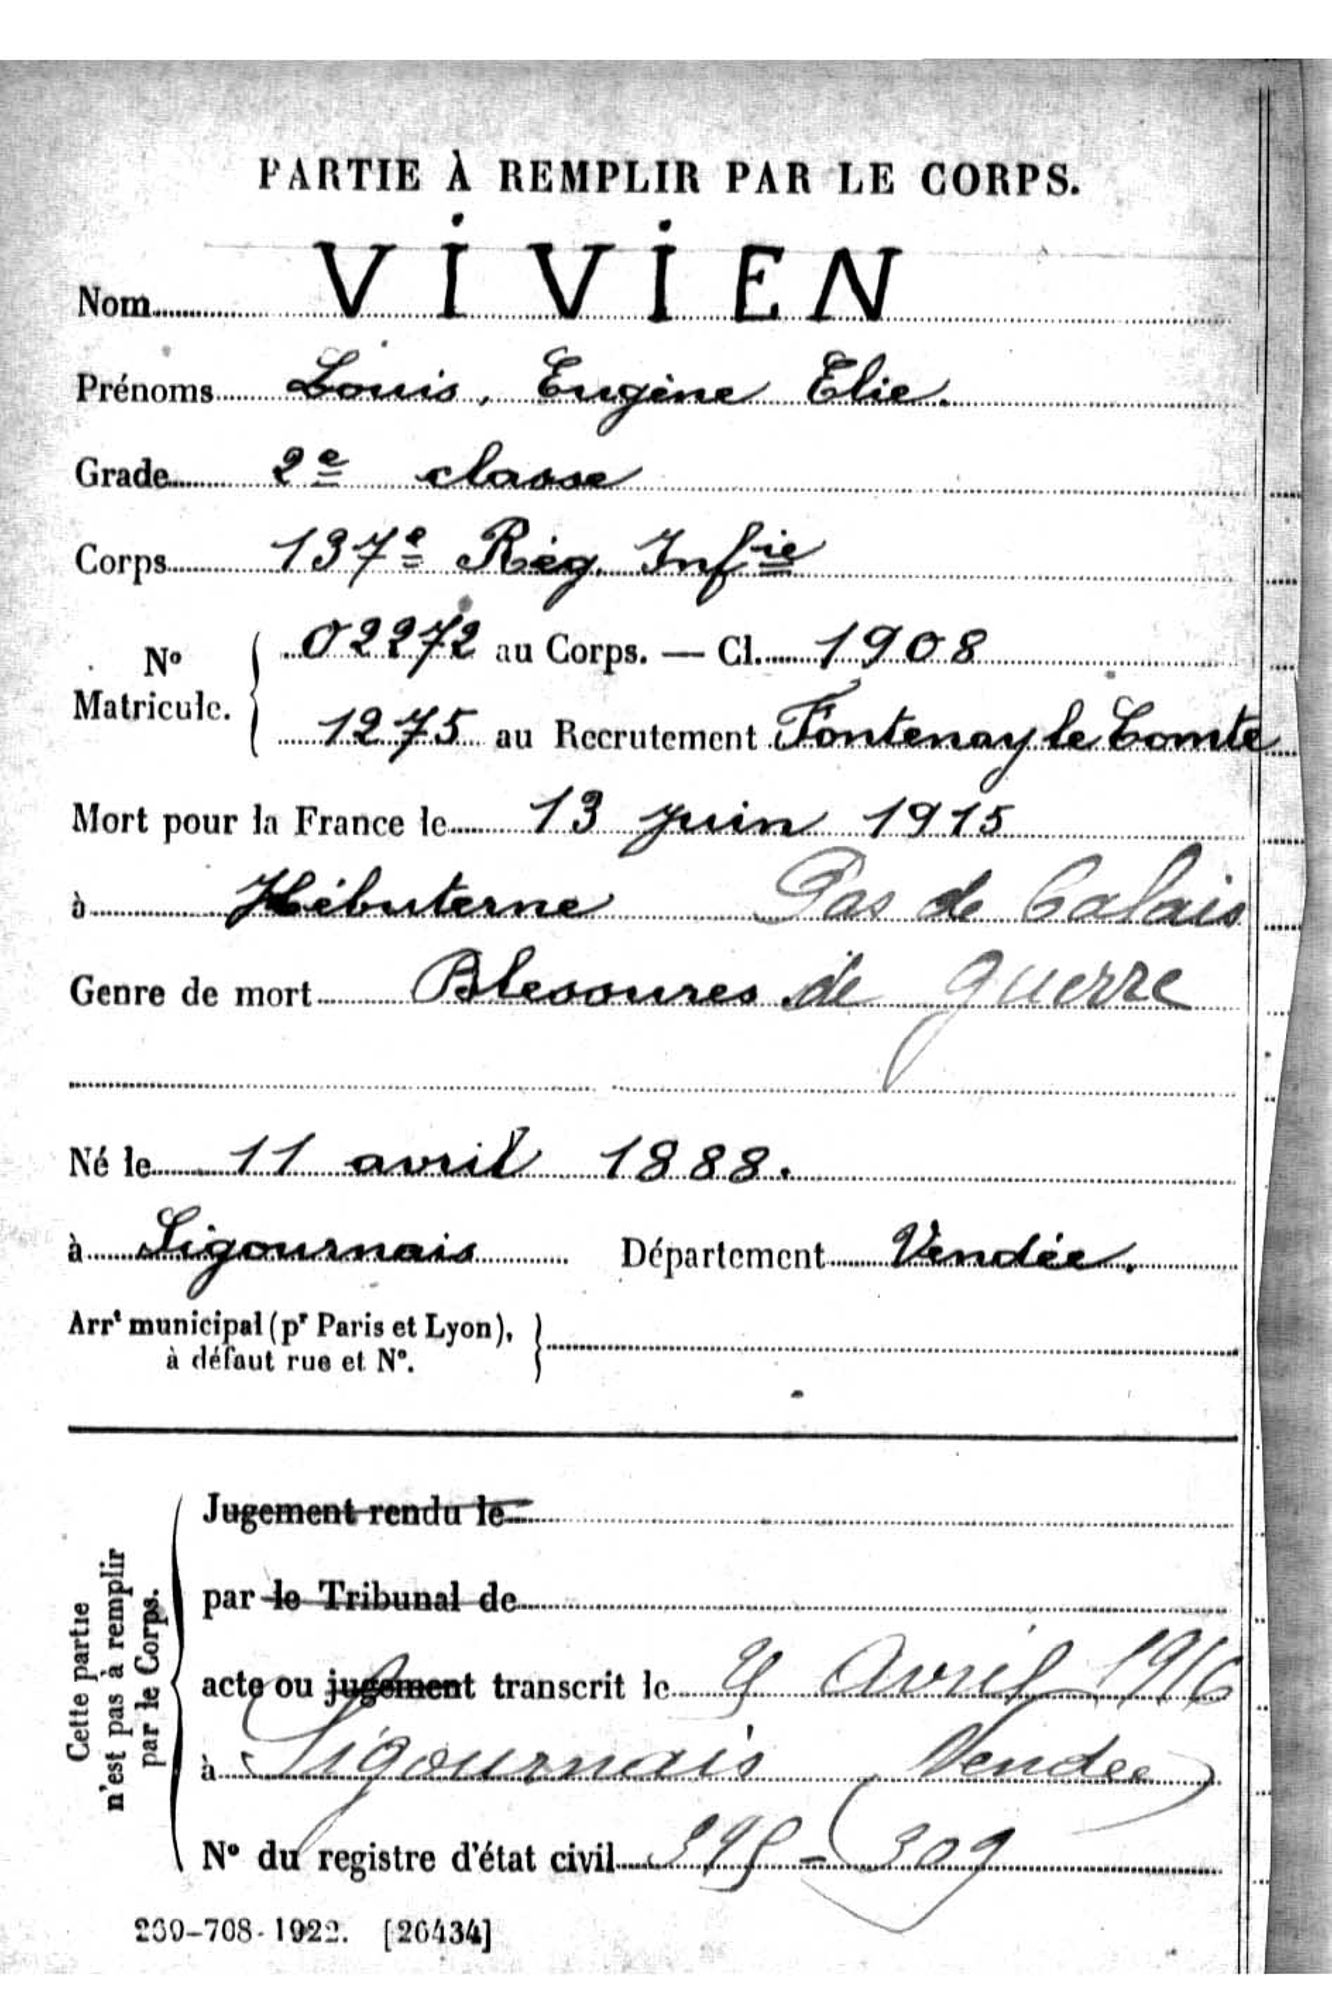 PARTIE À REMPLIR PAR LE CORPS.
Nom VIVIEN
Prénoms Louis, Eugène Elie.
Grade 2e classe
Corps 137e Rég. Infie
No Matricule. 02272 au Corps. — Cl. 1908
1275 au Recrutement Fontenay le Comte
Mort pour la France le 13 juin 1915
à Hébuterne Pas de Calais
Genre de mort Blessures de guerre
Né le 11 avril 1888.
à Sigournais Département Vendée.
Arrt municipal (pr Paris et Lyon),
à défaut rue et No.
Cette partie
n'est pas à remplir
par le Corps.
Jugement rendu le
par le Tribunal de
acte ou jugement transcrit le avril 1916
à Sigournais Vendée
No du registre d'état civil 309
[26434]